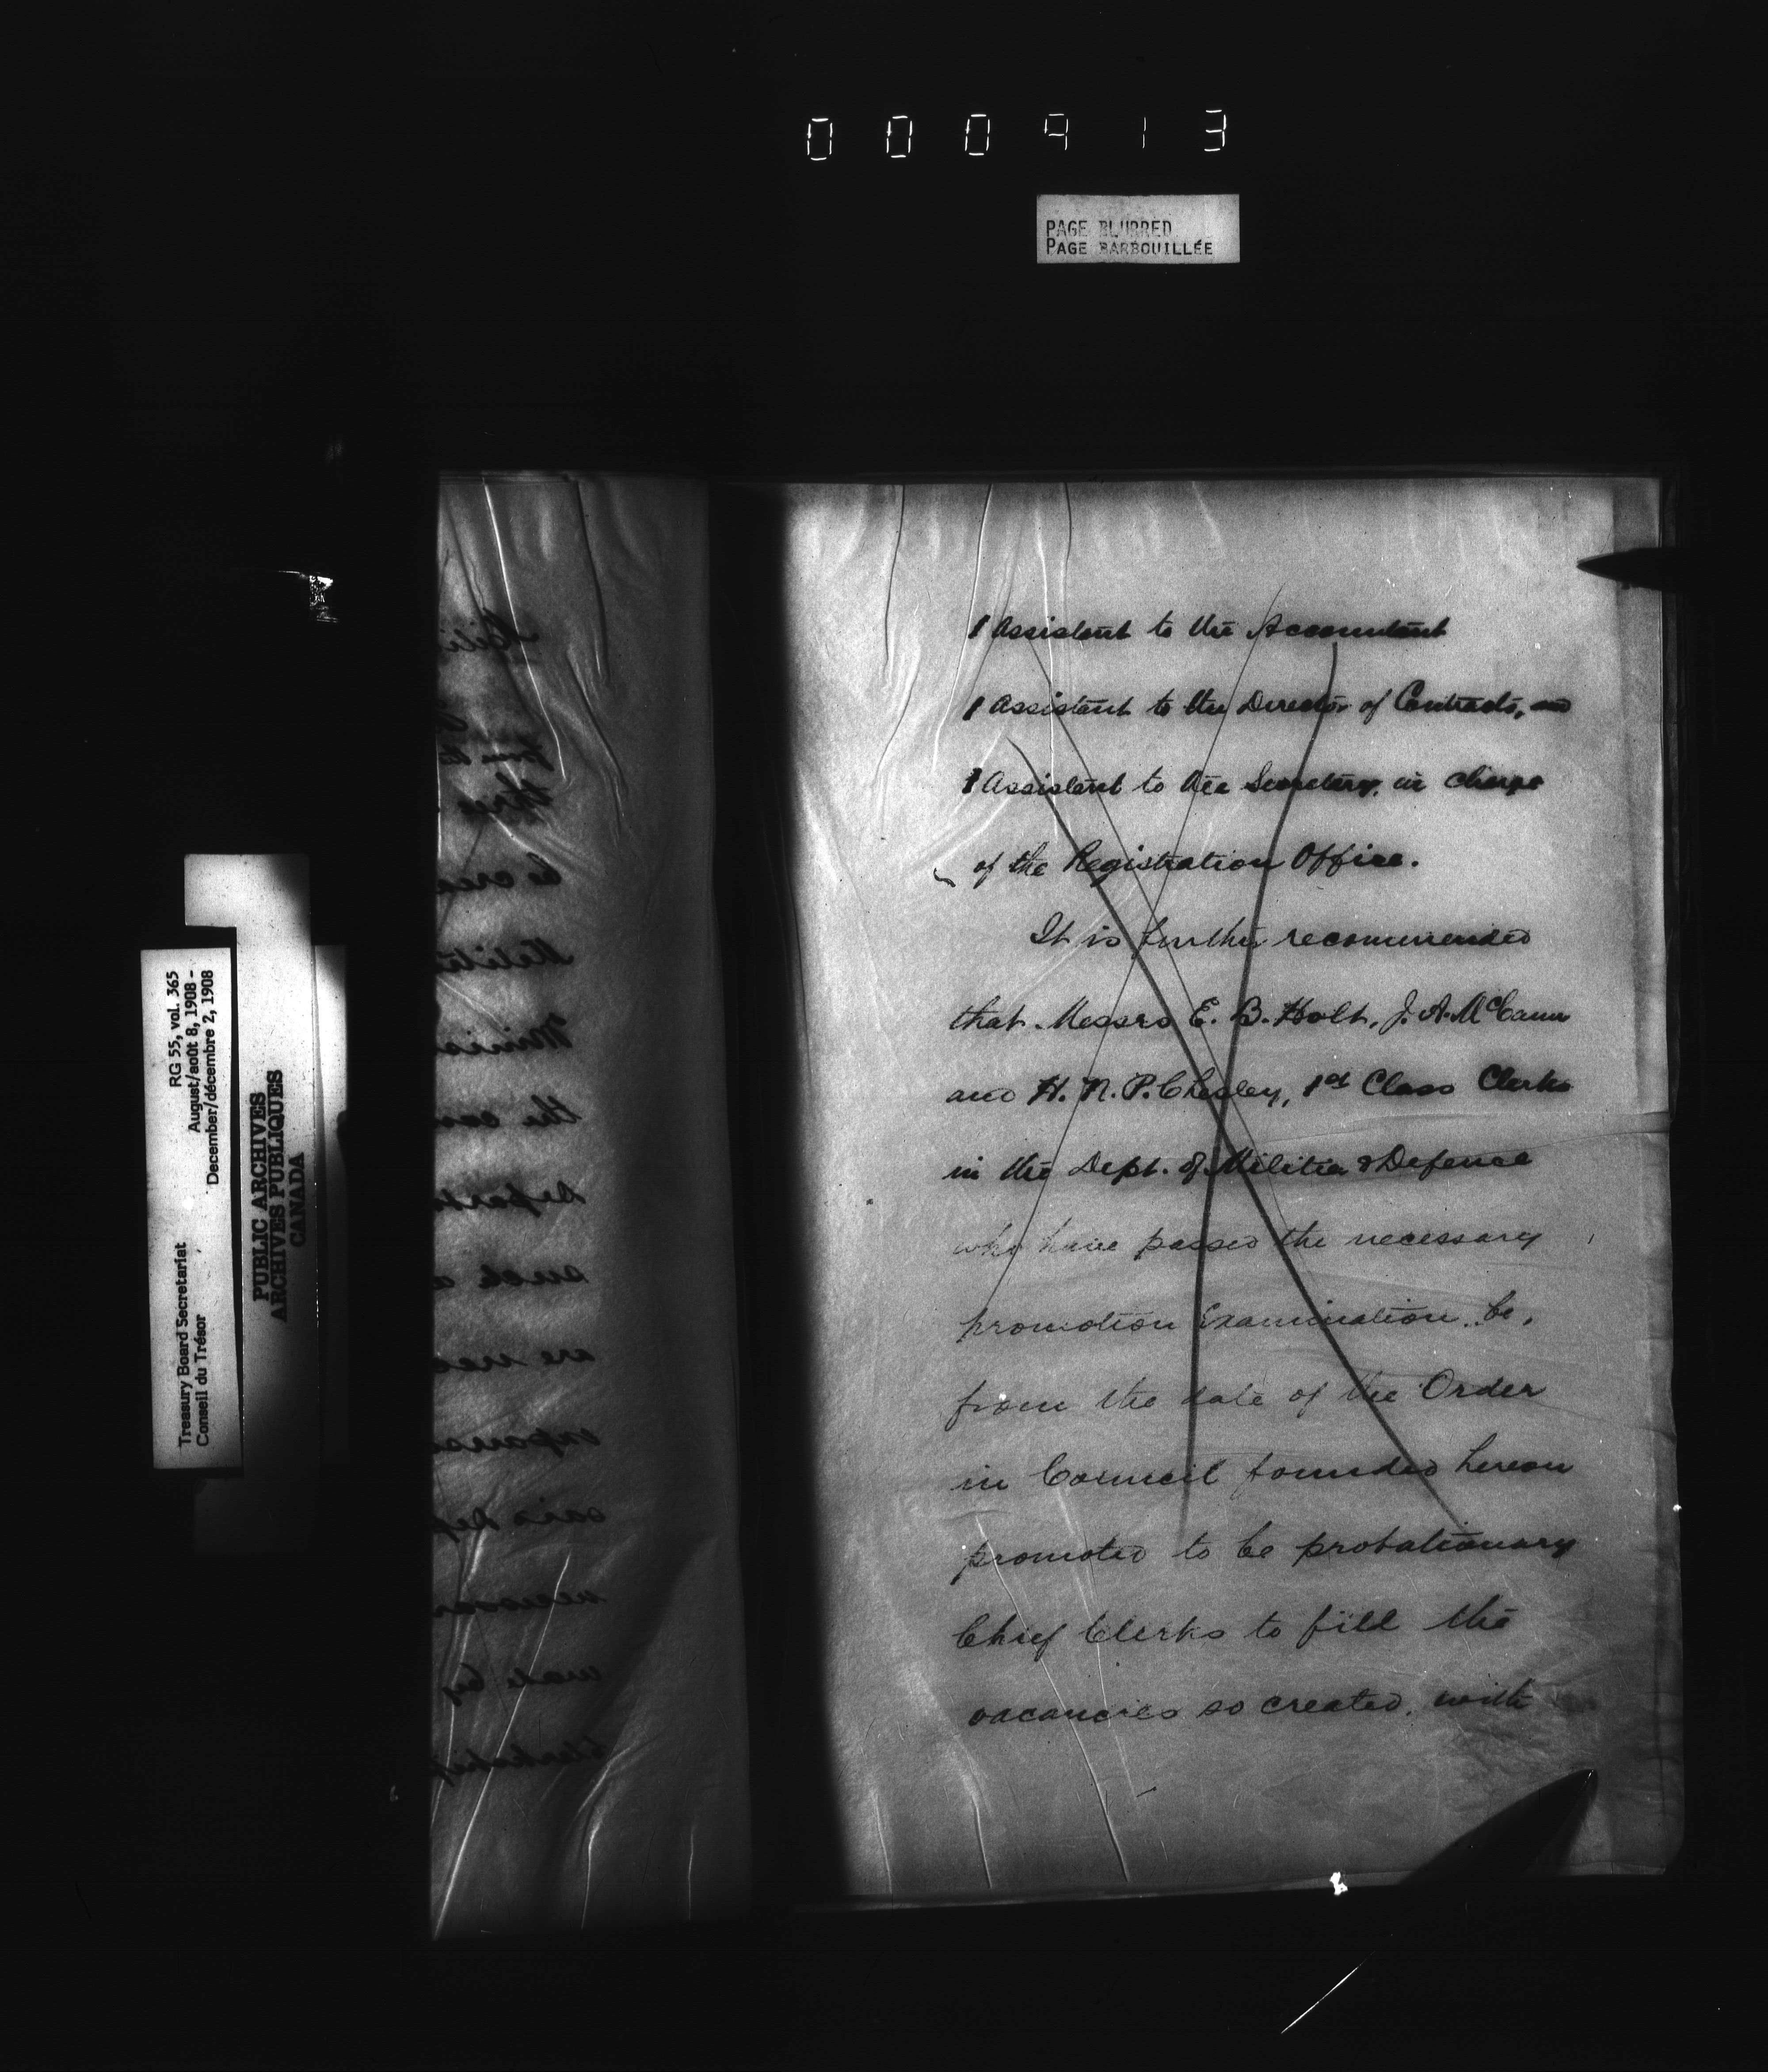 000913
PAGE BLURRED
PAGE BARBOUILLÉE
RG 55, vol. 365
August/août 8, 1908 -
December/décembre 2, 1908
Treasury Board Secretariat
Conseil du Trésor
PUBLIC ARCHIVES
ARCHIVES PUBLIQUES
CANADA
1 Assistant to the Accountant
1 Assistant to the Director of Contracts, and
1 Assistant to the Secretary, in charge
of the Registration Office.
It is further recommended
that Messrs E. B. Holt, J. A. McCann
and H. N. P. Chesley, 1st Class Clerks
in the Dept. of Militia & Defence
who have passed the necessary
promotion Examination, be,
from the date of the Order
in Council founded hereon
promoted to be probationary
Chief Clerks to fill the
vacancies so created, with